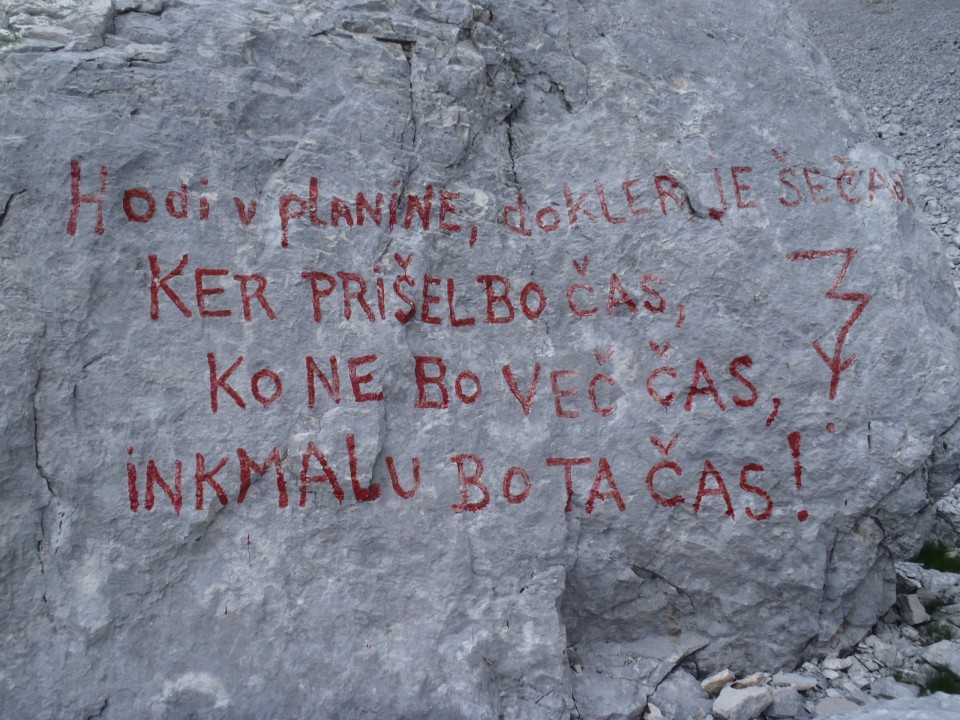 Hodi v PLANINE, dokler JE ŠE ČAS,
KER PRiŠEL BO ČAS,
KO NE BO VEČ ČAS,
iN KMALU BO TA ČAS!